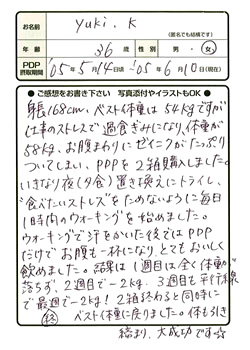 お名前
yuki. K
(匿名でも結構です)
年齢
36歳
性別
男・女
PDP摂取期間
'05年5月14日頃~'05年6月10日(現在)
●ご感想をお書き下さい 写真添付やイラストもOK●
身長168cm、ベスト体重は54kgですが
仕事のストレスで過食ぎみになり、体重が
58kg、お腹まわりにゼイニクがたっぷり
ついてしまい、PDPを2箱購入しました。
いきなり夜(夕食)置き換えにトライし、
"食べたいストレス"をためないように毎日
1時間のウォーキングを始めました。
ウォーキングで汗をかいた後ではPDP
だけでお腹も一杯になり、とてもおいしく
飲めました。結果は1週目は全く体重が
落ちず、2週目で-2kg、3週目も平行
で最週で-2kg!2箱終わると同時に
ベスト体重に戻りました。体も引き
締まり、大成功です☆
終